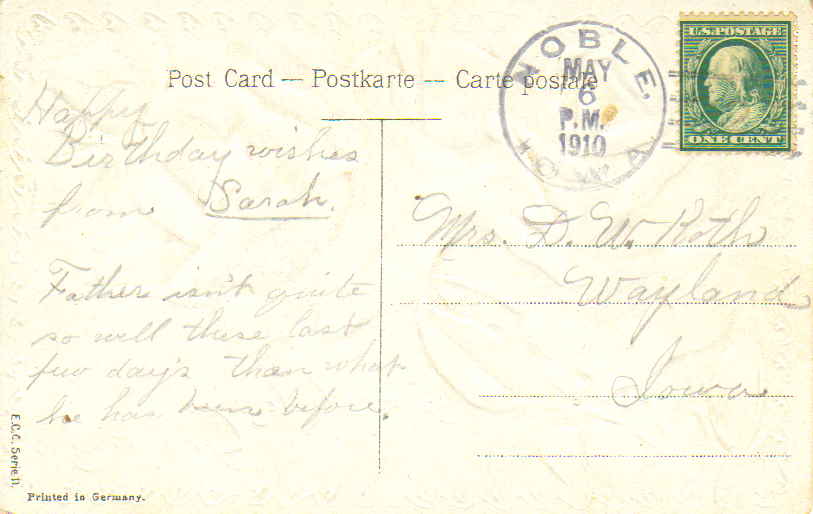 Post Card — Postkarte — Carte postale
NOBLE,
MAY
6
P.M.
1910
IOWA.
U.S. POSTAGE
ONE CENT
Happy
Birthday wishes
from Sarah.
Father isn't quite
so well these last
few days than what
he has been before.
Mrs. D. W. Roth
Wayland
Iowa
E.C.C. Serie 11.
Printed in Germany.